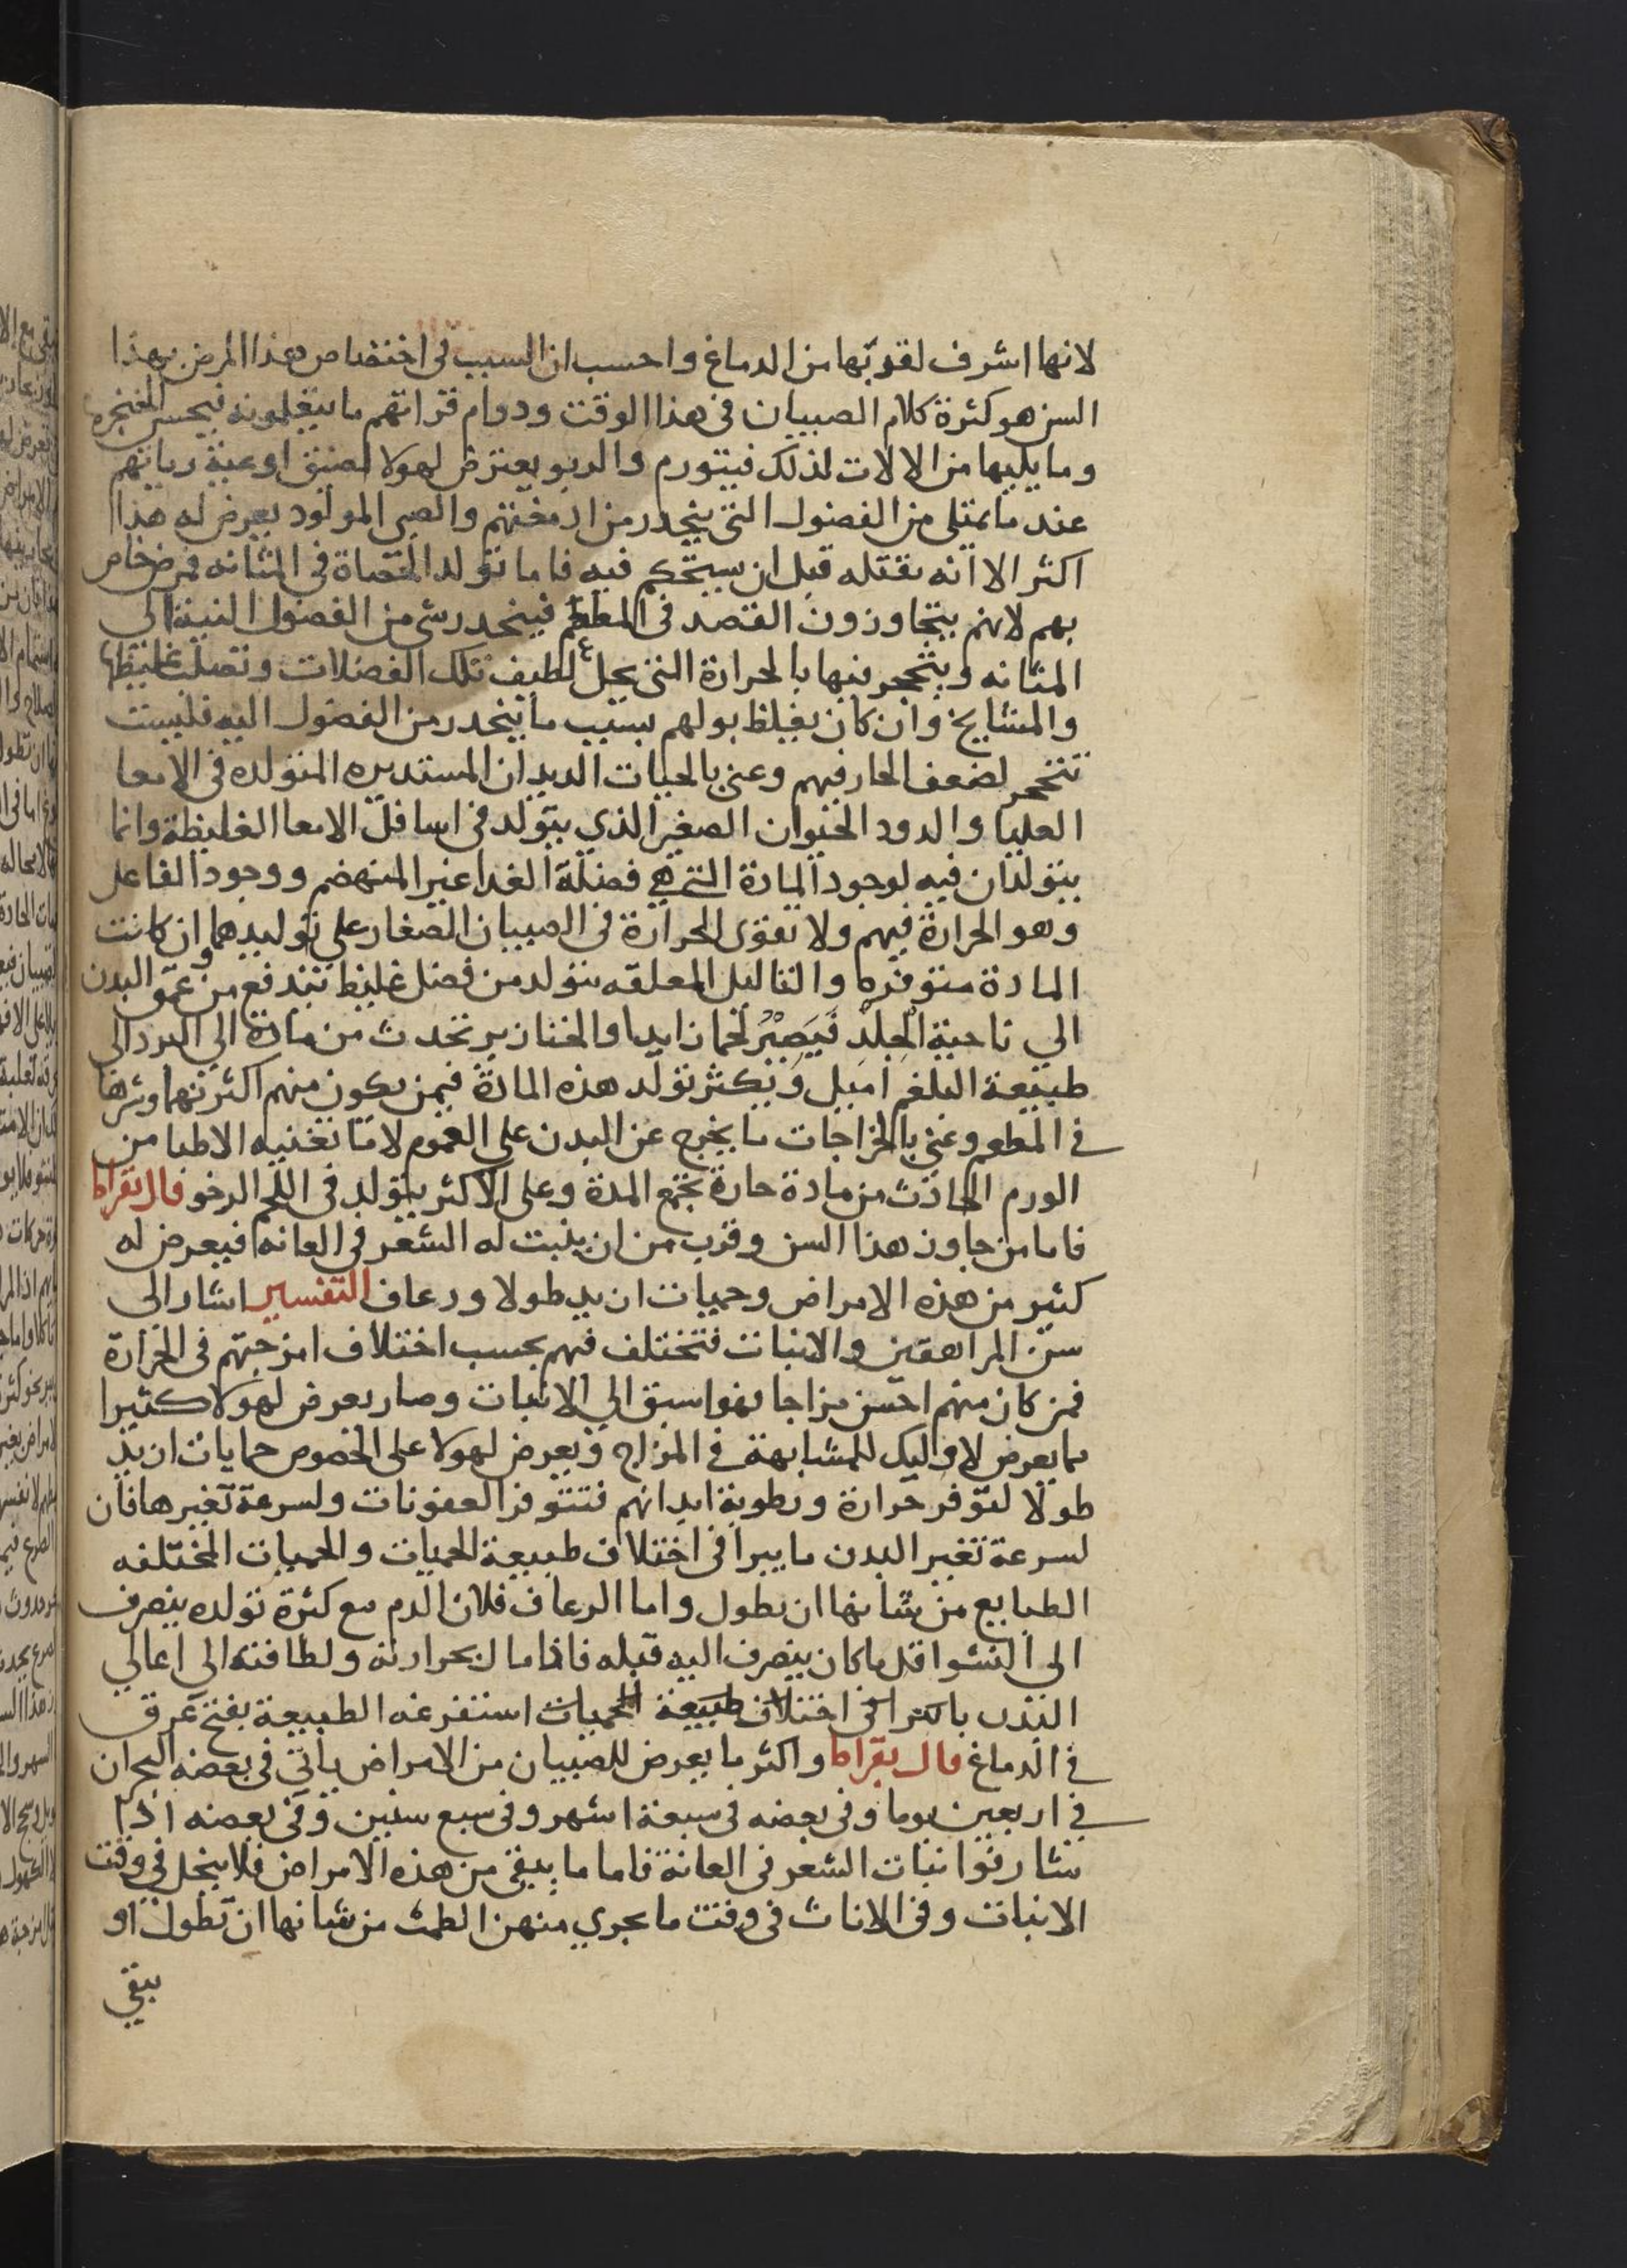 لانها اشرف لقوتها من الدماغ واحسب ان السبب في اختصاص هذا المرض بهذا
السن هو كثرة كلام الصبيان في هذا الوقت ودوام قراتهم ما يتعلمونه فيحسن الحنجره
وما يليها من الالات لذلك فيتورم والربو يعترض لهولا لضيق اوعية رياتهم
عند ما تمتلى من الفضول التي ينحدر من ادمغتهم والصبي المولود يعرض له هذا
اكثر الا انه يقتله قبل ان يستحكم فيه فاما تولد الحصاة في المثانه فمرض خاص
بهم لانهم يتجاوزون القصد في المطعم فينحدر شي من الفضول النية الى
المثانه ويتحجر فيها بالحرارة التي يحل لطيف تلك الفضلات وتصلب غليظها
والمشايخ وان كان يغلظ بولهم بسبب ما ينحدر من الفضول اليه فليست
تتحجر لضعف الحار فيهم وعني بالحيات الديدان المستديره المتولده في الامعا
العليا والدود الحيوان الصغير الذي يتولد في اسافل الامعا الغليظة وانما
يتولدان فيه لوجود المادة التي هي فضلة الغدا غير المنهضم ووجود الفاعل
وهو الحرارة فيهم ولا تقوى الحرارة في الصبيان الصغار على توليدهما وان كانت
المادة متوفره والثاليل المعلقه يتولد من فضل غليظ تندفع من عمق البدن
الي ناحية الجلد فيصير لحما زايدا والخنازير تحدث من مادة الي البرد الى
طبيعة البلغم اميل ويكثر تولد هذه المادة فيمن يكون منهم اكثر نهما وشرها
في المطعم وعني بالخراجات ما يخرج عن البدن على العموم لا ما تعنيه الاطبا من
الورم الحادث من مادة حارة تجمع المدة وعلى الاكثر يتولد في اللحم الرخو قال بقراط
فاما من جاوز هذا السن وقرب من ان ينبت له الشعر في العانه فيعرض له
كثير من هذه الامراض وحميات ازيد طولا ورعاف التفسير اشار الى
سن المراهقين والانبات فتختلف فيهم بحسب اختلاف امزجتهم في الحرارة
فمن كان منهم احسن مزاجا فهو اسبق الي الانبات وصار يعرض لهولا كثيرا
مما يعرض لاوليك للمشابهة في المزاج ويعرض لهولا على الخصوص حمايات ازيد
طولا لتوفر حرارة ورطوبة ابدانهم فتتوفر العفونات ولسرعة تغيرها فان
لسرعة تغير البدن ما ييرا في اختلاف طبيعة الحميات والحميات المختلفه
الطبايع من شانها ان يطول واما الرعاف فلان الدم مع كثرة تولده ينصرف
الى النشوا قل ما كان ينصرف اليه قبله فاذا مال بحرارته ولطافته الي اعالي
البدن في اختلاف طبيعة الحميات استفرغه الطبيعة بفتح عرق
في الدماغ قال بقراط واكثر ما يعرض للصبيان من الامراض ياتي في بعضه البحران
في اربعين يوما وفي بعضه في سبعة اشهر وفي سبع سنين وفي بعضه اذا
شارفوا نبات الشعر في العانة فاما ما يبقى من هذه الامراض فلا ينحل في وقت
الانبات وفي الاناث في وقت ما يجري منهن الطمث من شانها ان تطول او
يبقي